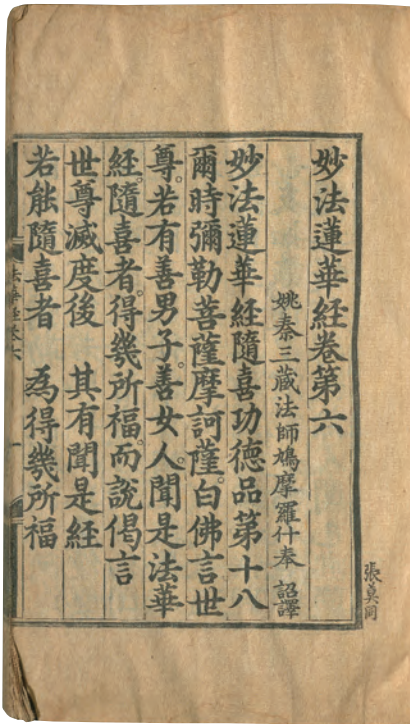 妙法蓮華經卷第六
姚秦三藏法師鳩摩羅什奉 詔譯
妙法蓮華經隨喜功德品第十八
爾時彌勒菩薩摩訶薩。白佛言。世
尊。若有善男子。善女人。聞是法華
經。隨喜者。得幾所福。而說偈言
世尊滅度後 其有聞是經
若能隨喜者 為得幾所福
法華經卷六 一